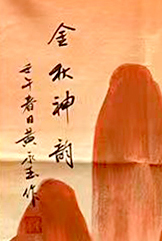 金秋神韵
壬午春日黄玉作